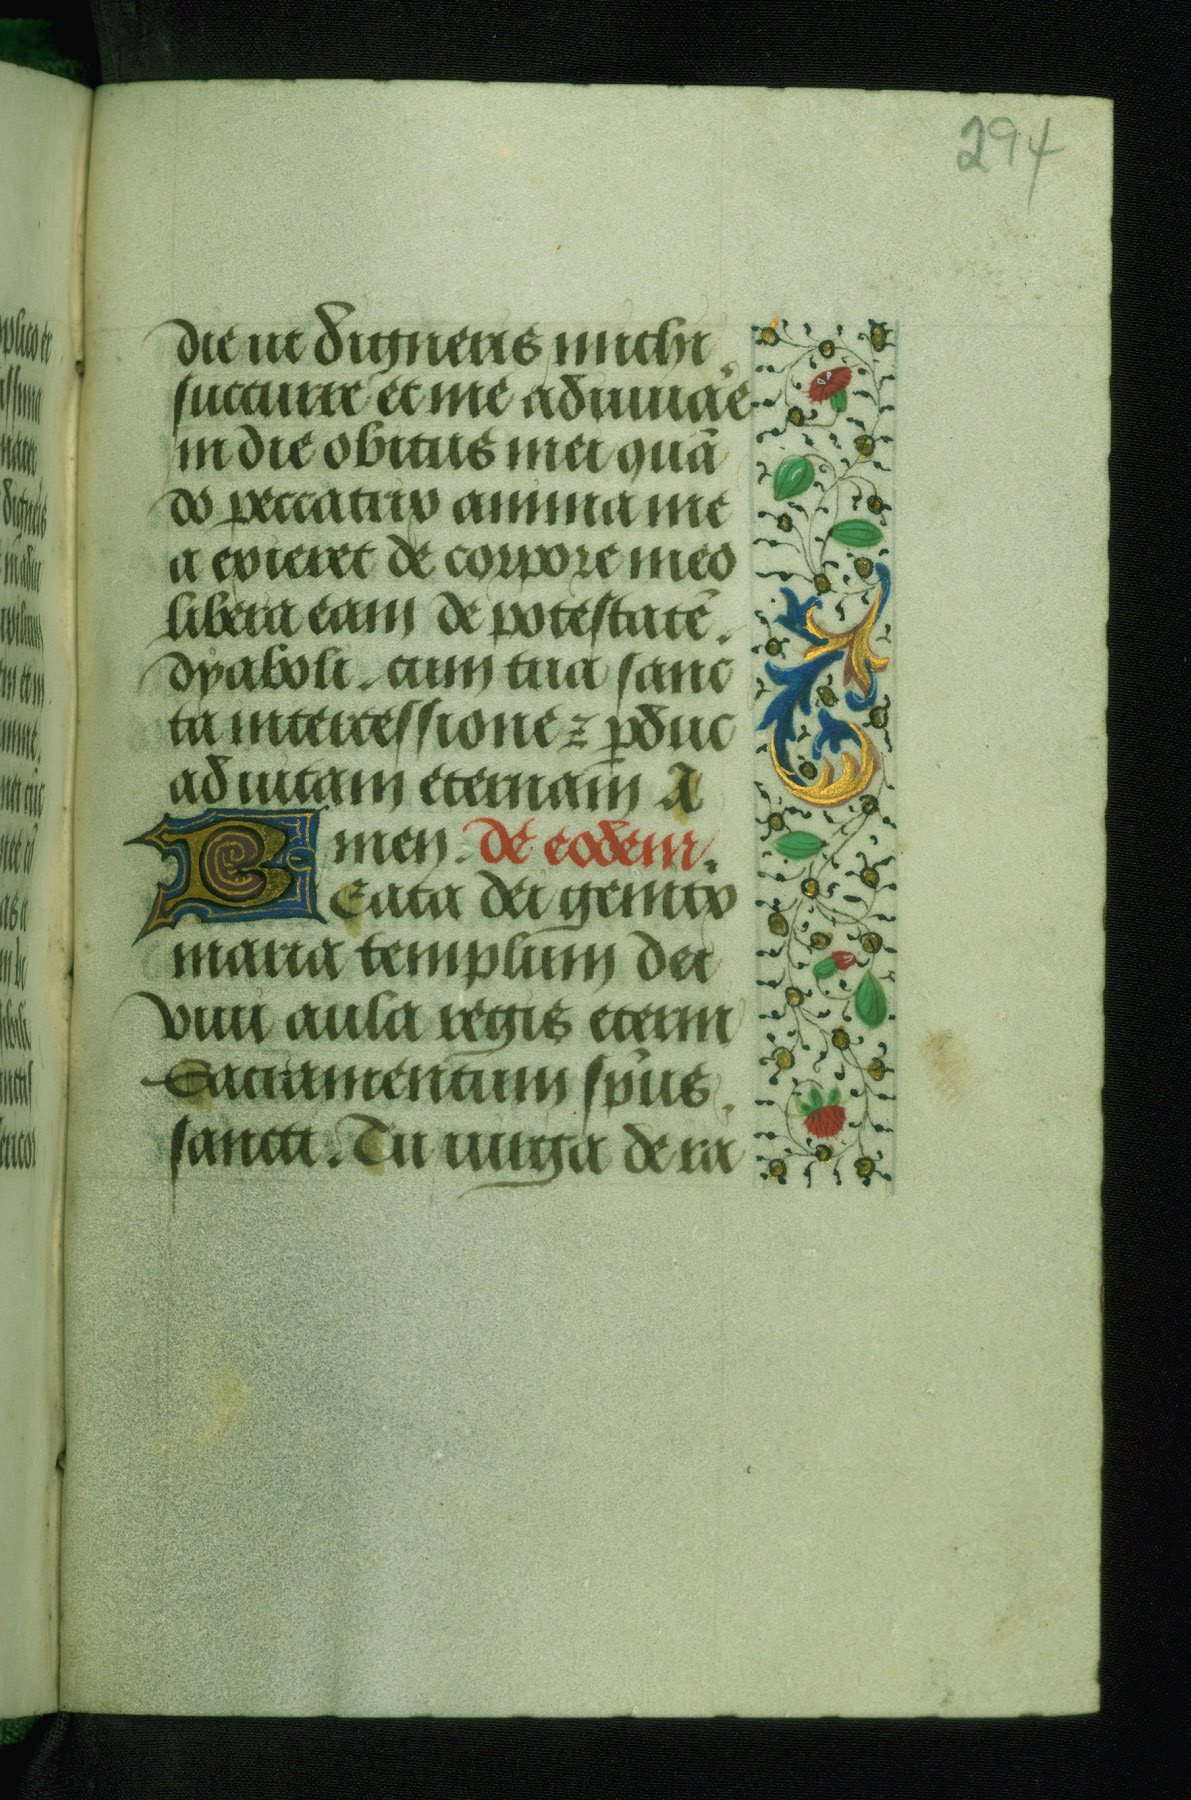 294
die ut digneris michi
succurre et me adiuuare
in die obitus mei quā
do peccatrix anima me
a exieret de corpore meo
libera eam de potestate
dyaboli. cum tua sanc
ta intercessione ⁊ ꝑduc
ad uitam eternam A
men. de eodem.
Beata dei genitrix
maria templum dei
viui aula regis eterni
Sacramentum sp̄us
sancti. Tu uirga de ra